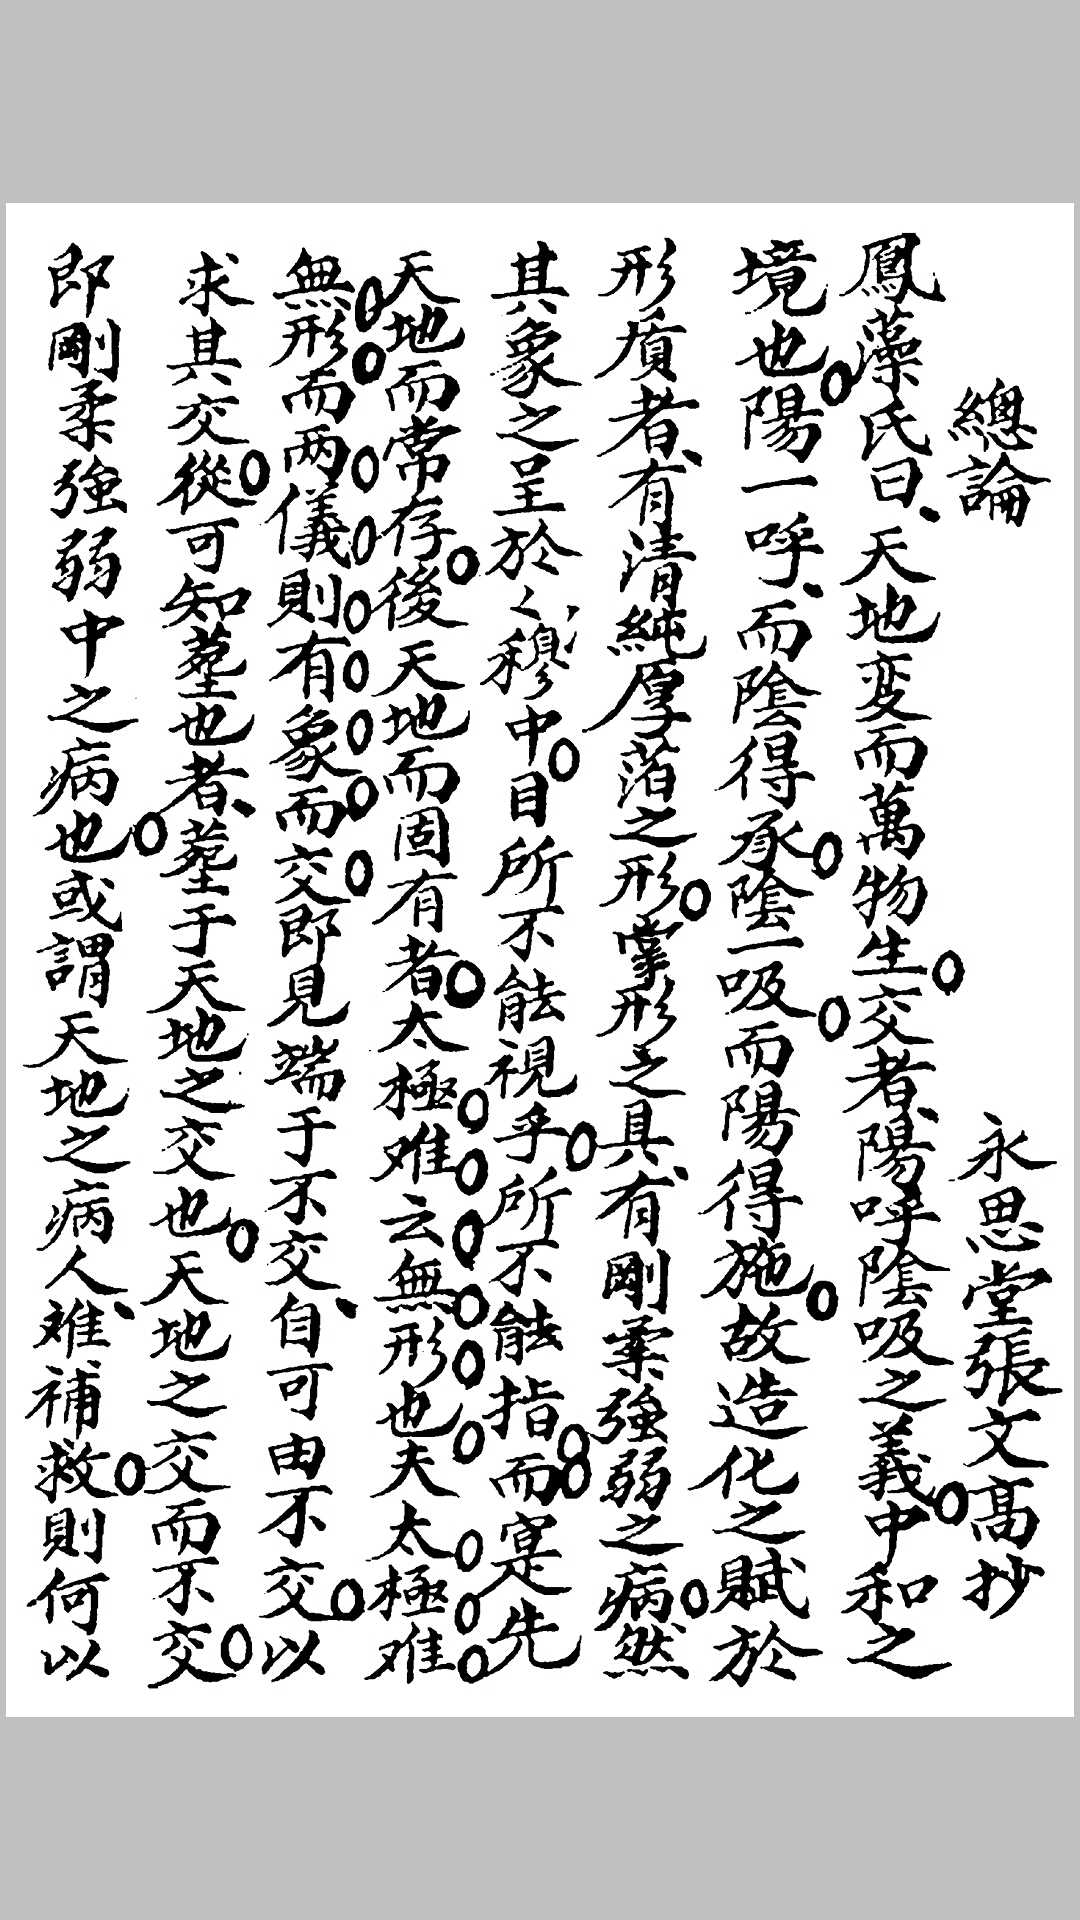 總論 永思堂張文高抄
鳳藻氏曰天地変而萬物生交者陽呼陰吸之義中和之
境也陽一呼而陰得承陰一吸而陽得施故造化之賦於
形質者有清純厚落之形掌形之具有剛柔強弱之病然
其象之呈於穆中目所不能視乎所不能指而寔先
天地而常存後天地而固有者太極难云無形也夫太極难
無形而两儀則有象而交即見端于不交自可由不交以
求其交從可知塟也者塟于天地之交也天地之交而不交
即剛柔強弱中之病也或謂天地之病人难補救則何以